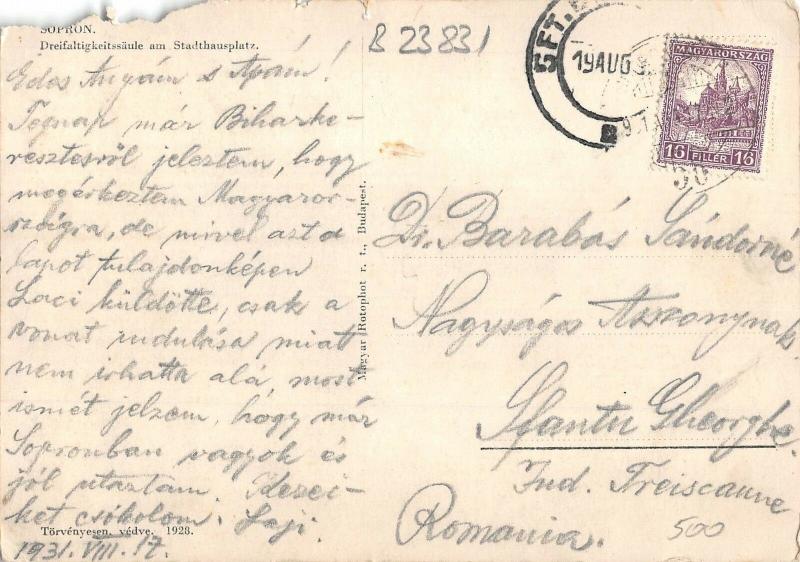 SOPRON.
Dreifaltigkeitssäule am Stadthausplatz.
Édes Anyám s Apám!
Tegnap már Biharke-
resztesről jeleztem, hogy
megérkeztem Magyaror-
szágra, de mivel azt a
lapot tulajdonképen
Laci küldötte, csak a
vonat indulása miatt
nem írhatta alá, most
ismét jelzem, hogy már
Sopronban vagyok és
jól utaztam. Kezei-
ket csókolom. Laji.
Törvényesen védve. 1928.
1931. VIII. 17.
Magyar Rotophot r. t., Budapest.
B 23831
SFT.
19AUG3
MAGYARORSZÁG
16 FILLÉR 16
Dr. Barabás Sándorné
Nagyságos Asszonynak
Sfantu Gheorghe
Jud. Treiscaune
Romania.
500